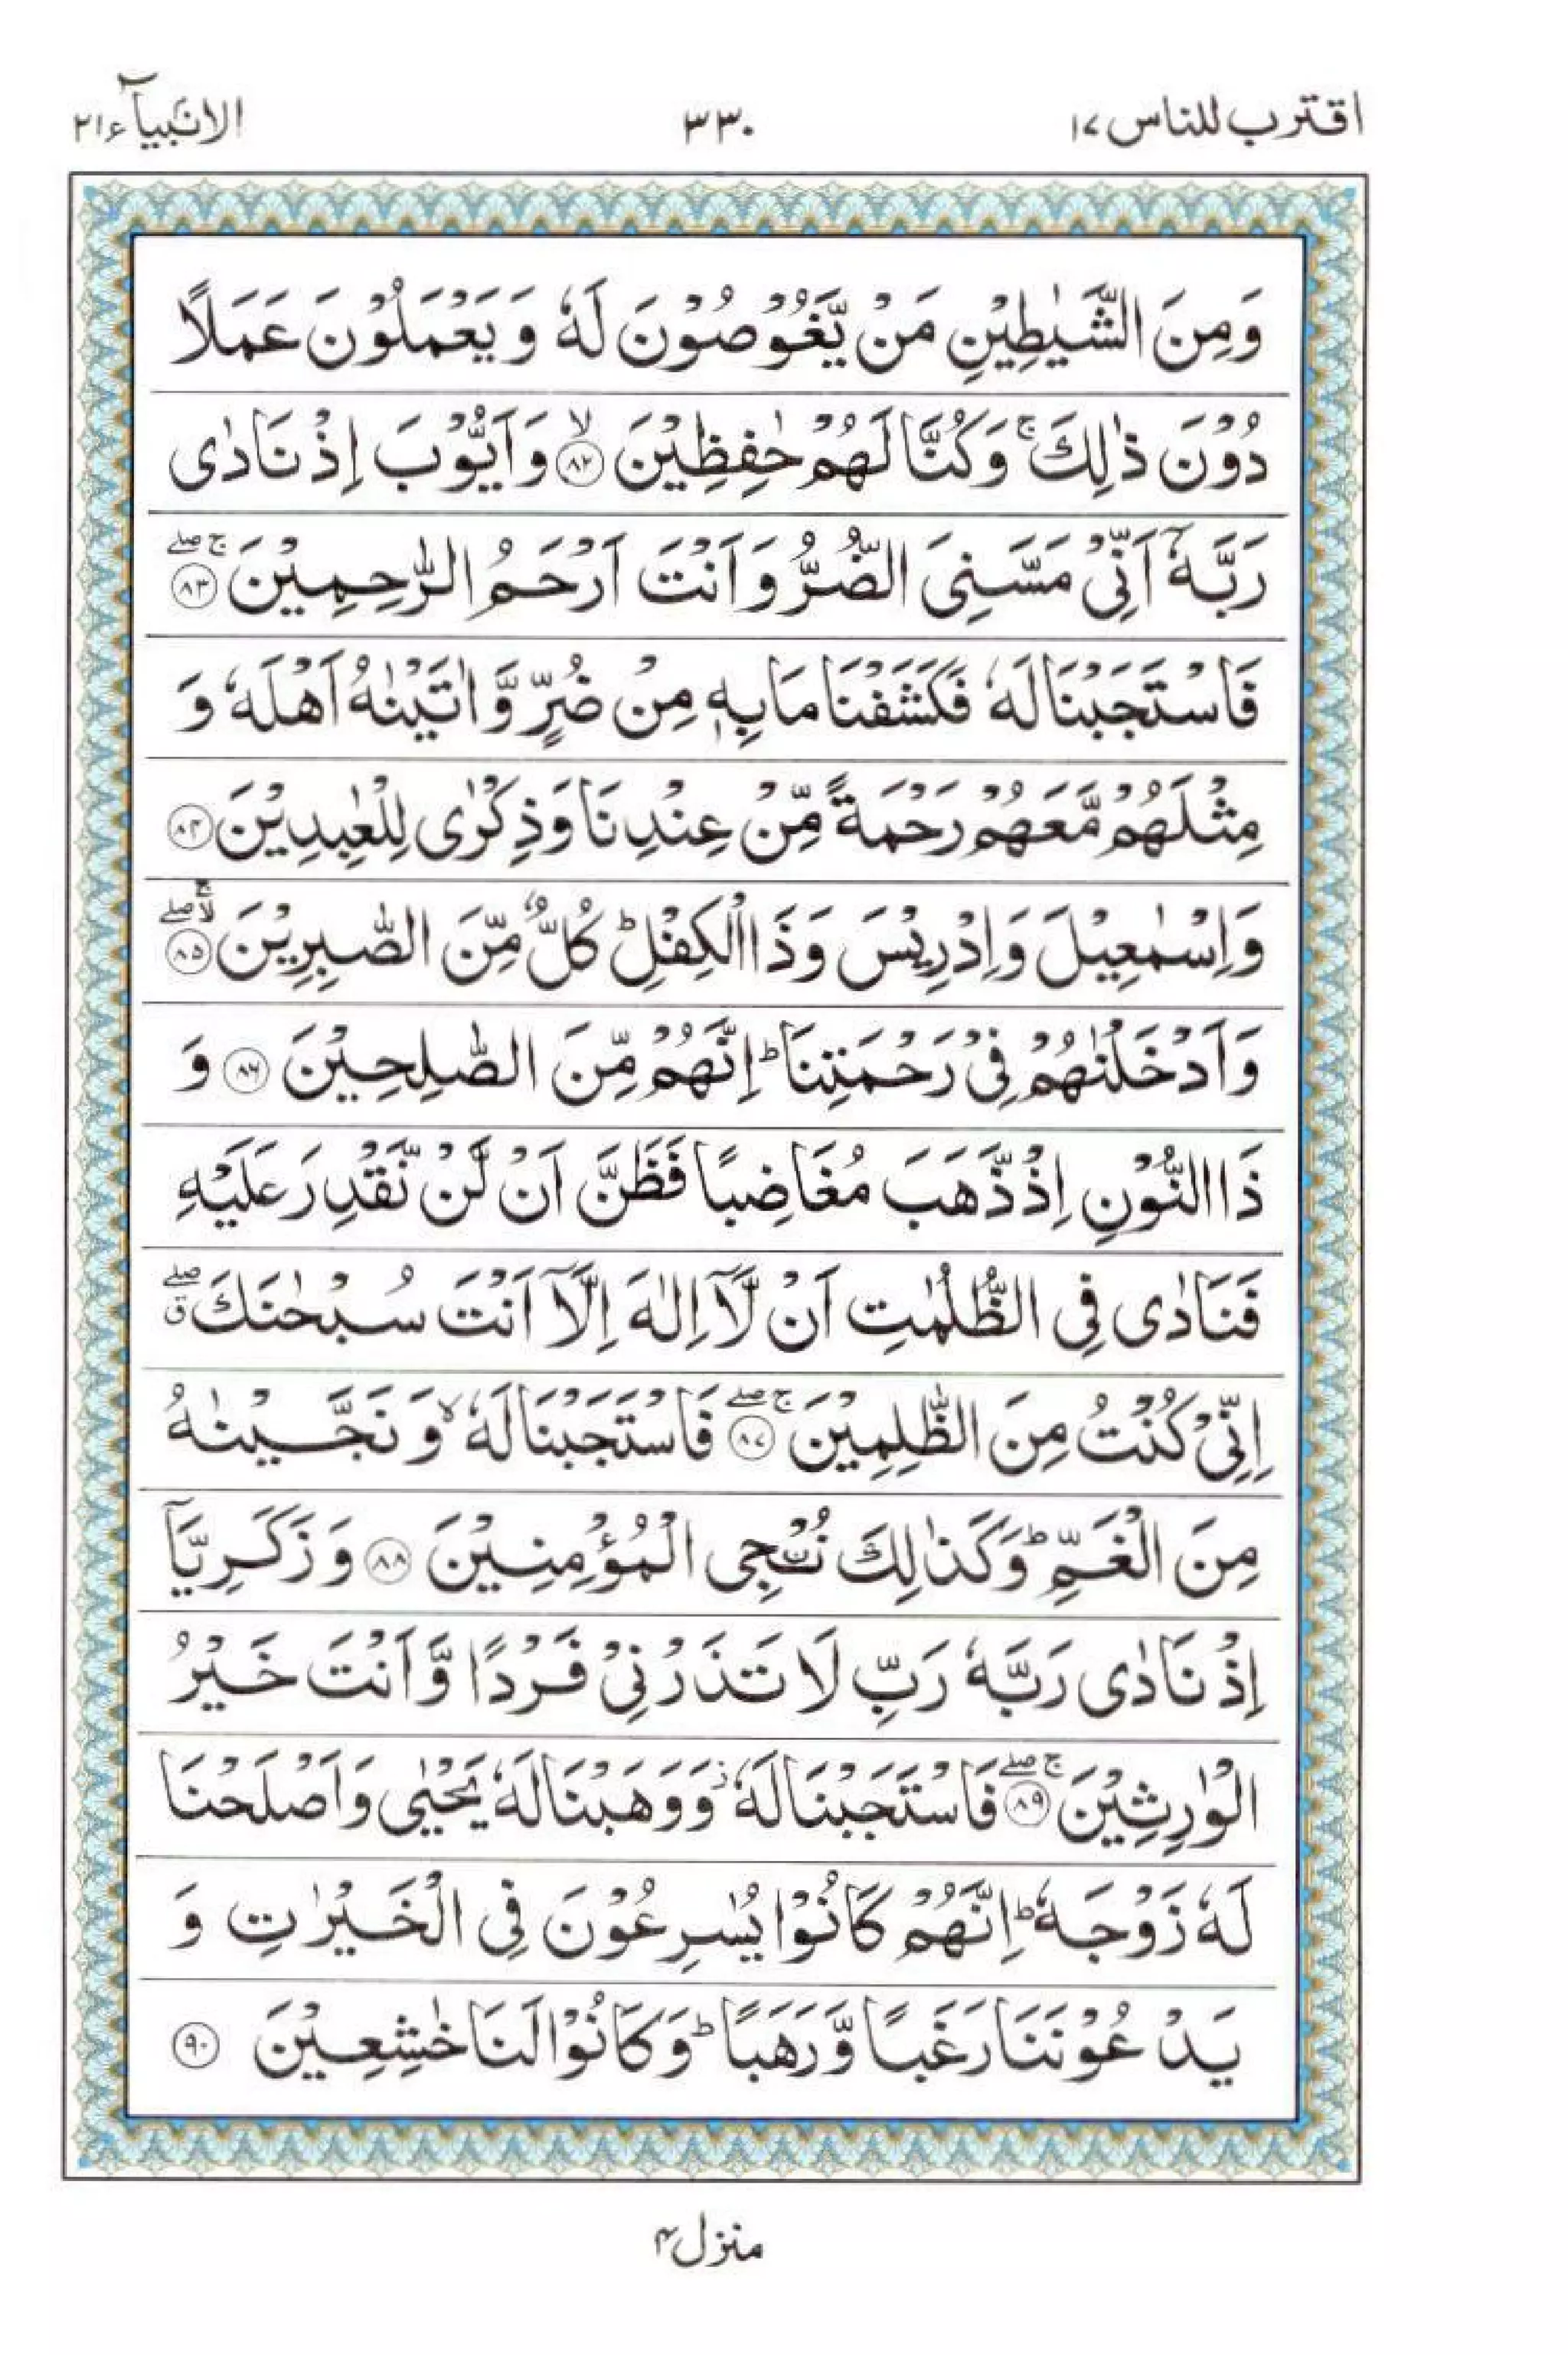 اقترب للناس ١٧
٣٣٠
الانبیآء ٢١
وَمِنَ الشَّيٰطِيْنِ مَنْ يَّغُوْصُوْنَ لَهٗ وَيَعْمَلُوْنَ عَمَلًا
دُوْنَ ذٰلِكَ ۚ وَكُنَّا لَهُمْ حٰفِظِيْنَ ۙ﴿٨٢﴾ وَاَيُّوْبَ اِذْ نَادٰى
رَبَّهٗۤ اَنِّىْ مَسَّنِىَ الضُّرُّ وَاَنْتَ اَرْحَمُ الرّٰحِمِيْنَ ۚۖ﴿٨٣﴾
فَاسْتَجَبْنَا لَهٗ فَكَشَفْنَا مَا بِهٖ مِنْ ضُرٍّ وَّاٰتَيْنٰهُ اَهْلَهٗ وَ
مِثْلَهُمْ مَّعَهُمْ رَحْمَةً مِّنْ عِنْدِنَا وَذِكْرٰى لِلْعٰبِدِيْنَ ﴿٨٤﴾
وَاِسْمٰعِيْلَ وَاِدْرِيْسَ وَذَا الْكِفْلِ ؕ كُلٌّ مِّنَ الصّٰبِرِيْنَ ۚۖ﴿٨٥﴾
وَاَدْخَلْنٰهُمْ فِىْ رَحْمَتِنَا ؕ اِنَّهُمْ مِّنَ الصّٰلِحِيْنَ ﴿٨٦﴾ وَ
ذَا النُّوْنِ اِذْ ذَّهَبَ مُغَاضِبًا فَظَنَّ اَنْ لَّنْ نَّقْدِرَ عَلَيْهِ
فَنَادٰى فِى الظُّلُمٰتِ اَنْ لَّاۤ اِلٰهَ اِلَّاۤ اَنْتَ سُبْحٰنَكَ ۖق
اِنِّىْ كُنْتُ مِنَ الظّٰلِمِيْنَ ۚۖ﴿٨٧﴾ فَاسْتَجَبْنَا لَهٗ ۙ وَنَجَّيْنٰهُ
مِنَ الْغَمِّ ؕ وَكَذٰلِكَ نُـنْجِى الْمُؤْمِنِيْنَ ﴿٨٨﴾ وَزَكَرِيَّاۤ
اِذْ نَادٰى رَبَّهٗ رَبِّ لَا تَذَرْنِىْ فَرْدًا وَّاَنْتَ خَيْرُ
الْوٰرِثِيْنَ ۚۖ﴿٨٩﴾ فَاسْتَجَبْنَا لَهٗ ز وَوَهَبْنَا لَهٗ يَحْيٰى وَاَصْلَحْنَا
لَهٗ زَوْجَهٗ ؕ اِنَّهُمْ كَانُوْا يُسٰرِعُوْنَ فِى الْخَيْرٰتِ وَ
يَدْعُوْنَنَا رَغَبًا وَّرَهَبًا ؕ وَكَانُوْا لَنَا خٰشِعِيْنَ ﴿٩٠﴾
منزل ۴